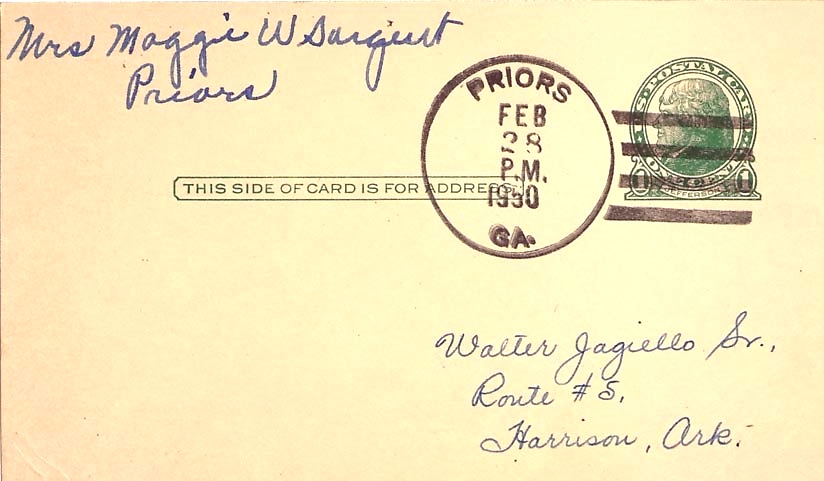 Mrs Maggie W Sargent
Priors
PRIORS
FEB
28
P.M.
1950
GA.
THIS SIDE OF CARD IS FOR ADDRESS
1 JEFFERSON 1
Walter Jagiello Sr.,
Route # 5,
Harrison, Ark.